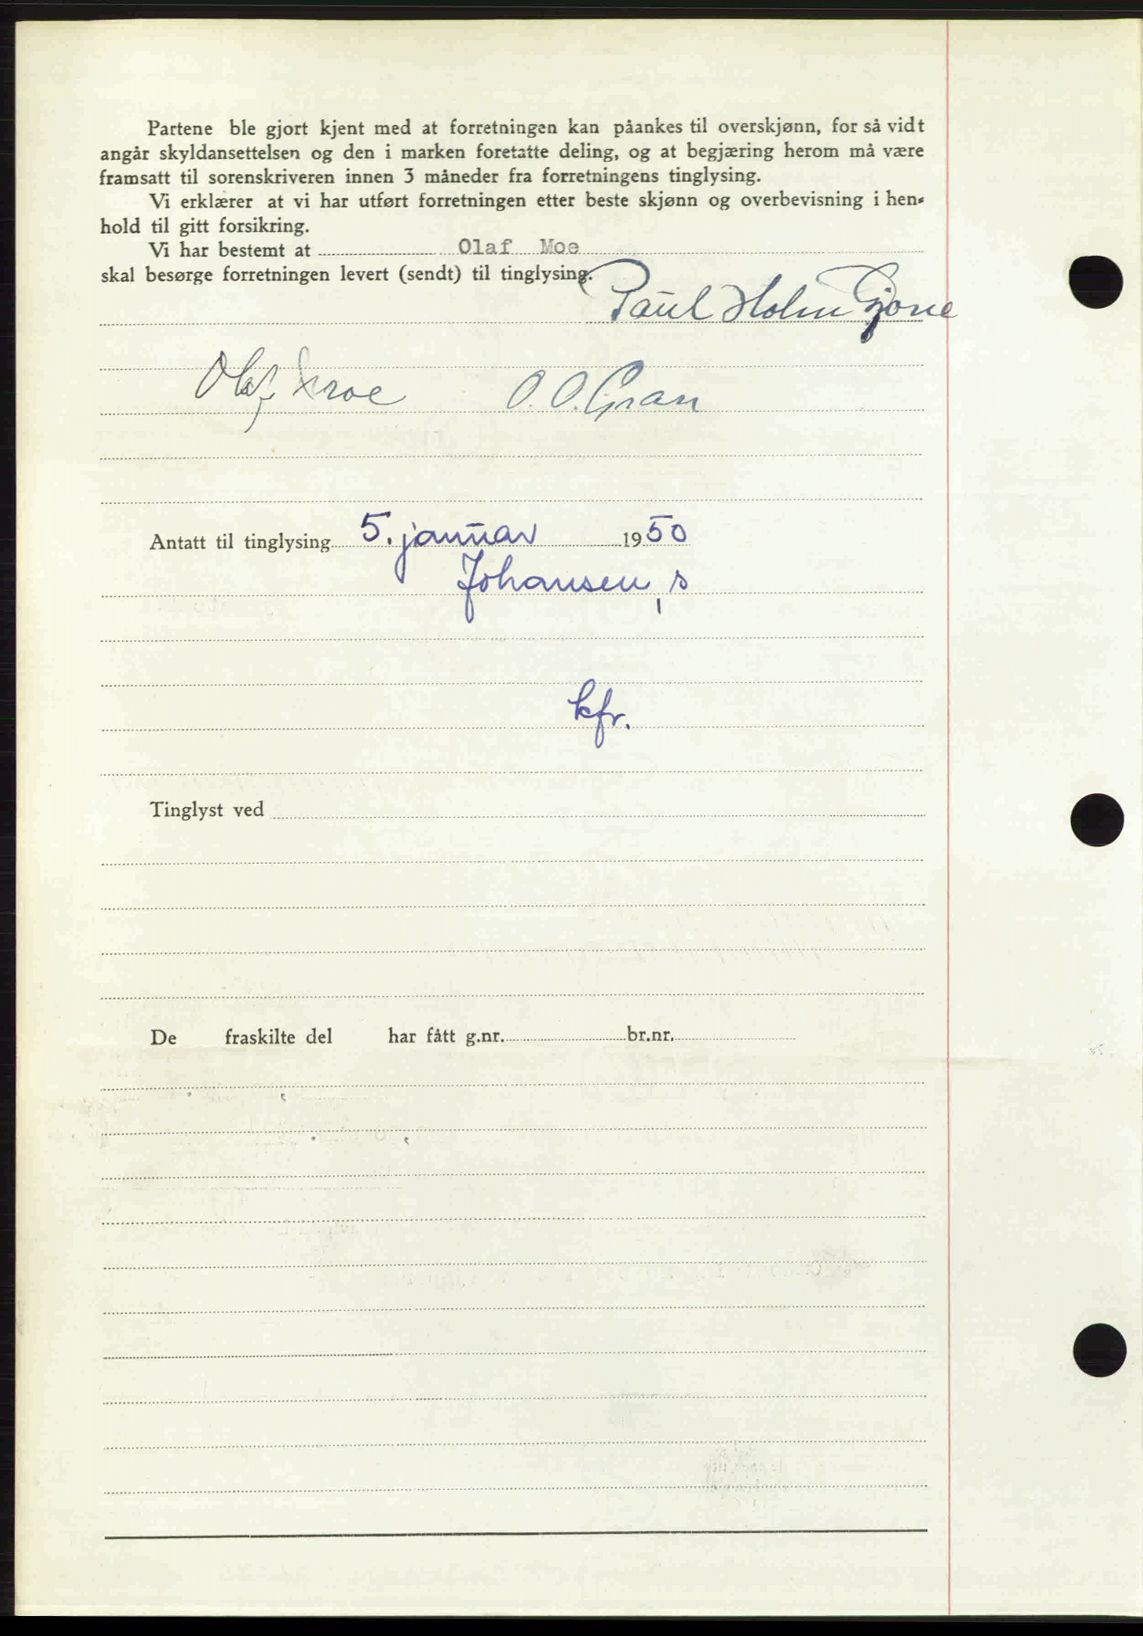 Partene ble gjort kjent med at forretningen kan påankes til overskjønn, for så vidt
angår skyldansettelsen og den i marken foretatte deling, og at begjæring herom må være
framsatt til sorenskriveren innen 3 måneder fra forretningens tinglysing.
Vi erklærer at vi har utført forretningen etter beste skjønn og overbevisning i hen-
hold til gitt forsikring.
Vi har bestemt at Olaf Moe
skal besørge forretningen levert (sendt) til tinglysing.
Paul Holm Gjone
Olaf Moe O. O. Gran
Antatt til tinglysing 5. januar 1950
Johansen, s
kfr.
Tinglyst ved
De fraskilte del har fått g.nr. br.nr.